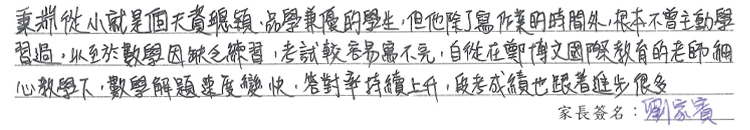 秉淵從小就是個天資聰穎，品學兼優的學生，但他除了寫作業的時間外，根本不曾主動學
習過，以至於數學因缺乏練習，考試較容易寫不完，自從在鄭博文國際教育的老師細
心教學下，數學解題速度變快，答對率持續上升，段考成績也跟著進步很多
家長簽名：劉家賓